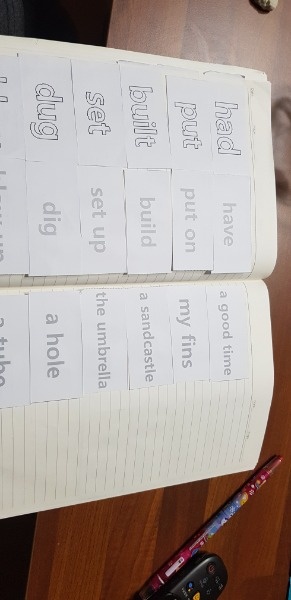 had have a good time
put put on my fins
built build a sandcastle
set set up the umbrella
dug dig a hole
a tube